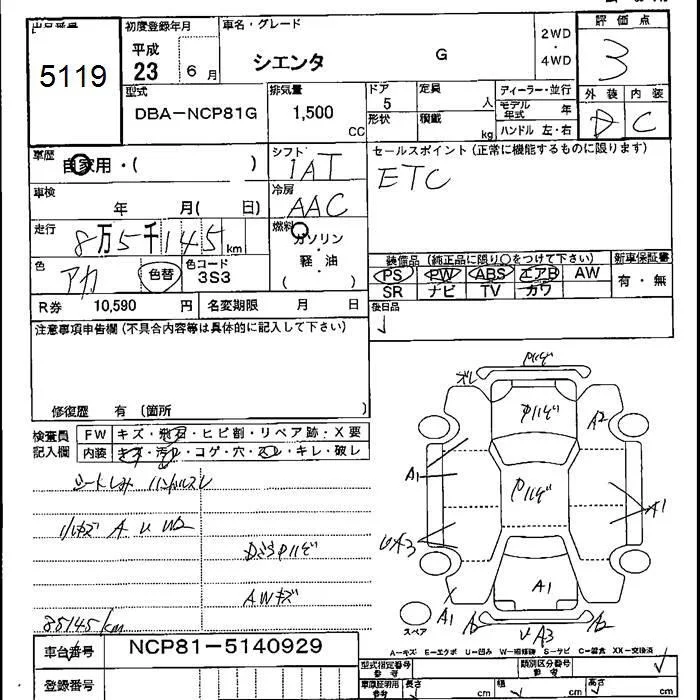 出品番号
5119
初度登録年月
平成
23 6月
車名・グレード
シエンタ G
2WD
・
4WD
評価点
3
外装 内装
D C
型式
DBA-NCP81G
排気量
1,500
CC
ドア
5
形状
定員
人
積載
kg
ディーラー・並行
モデル年式 年
ハンドル 左・右
車歴
自家用・( )
シフト
IAT
セールスポイント(正常に機能するものに限ります)
ETC
車検
年 月( 日)
冷房
AAC
走行
8万5千145km
燃料
ガソリン
・
軽・油
・
( )
色
アカ
色替
色コード
3S3
装備品(純正品に限り○をつけて下さい)
PS PW ABS エアB AW
SR ナビ TV カワ
新車保証書
有・無
R券 10,590 円 名変期限 月 日
後日品
注意事項申告欄(不具合内容等は具体的に記入して下さい)
修復歴 有(箇所 )
検査員
記入欄
FW キズ・飛石・ヒビ割・リペア跡・X要
内装 キズ・汚れ・コゲ・穴・スレ・キレ・破レ
シートしみ ハンドルスレ
小キズ A U W2
AWキズ
85145km
A2
A1
A1
UA3
A1
A1
A2
UA3
A2
スペア
A-キズ E-エクボ U-凹み W-補修跡 S-サビ C-腐食 XX-交換済
車台番号
NCP81-5140929
登録番号
型式指定番号
参考
類別区分番号
参考
車庫証明用
参考
長さ cm
幅 cm
高さ cm